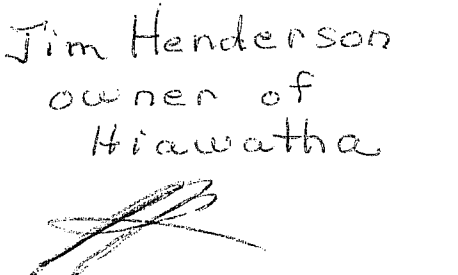 Jim Henderson
owner of
Hiawatha